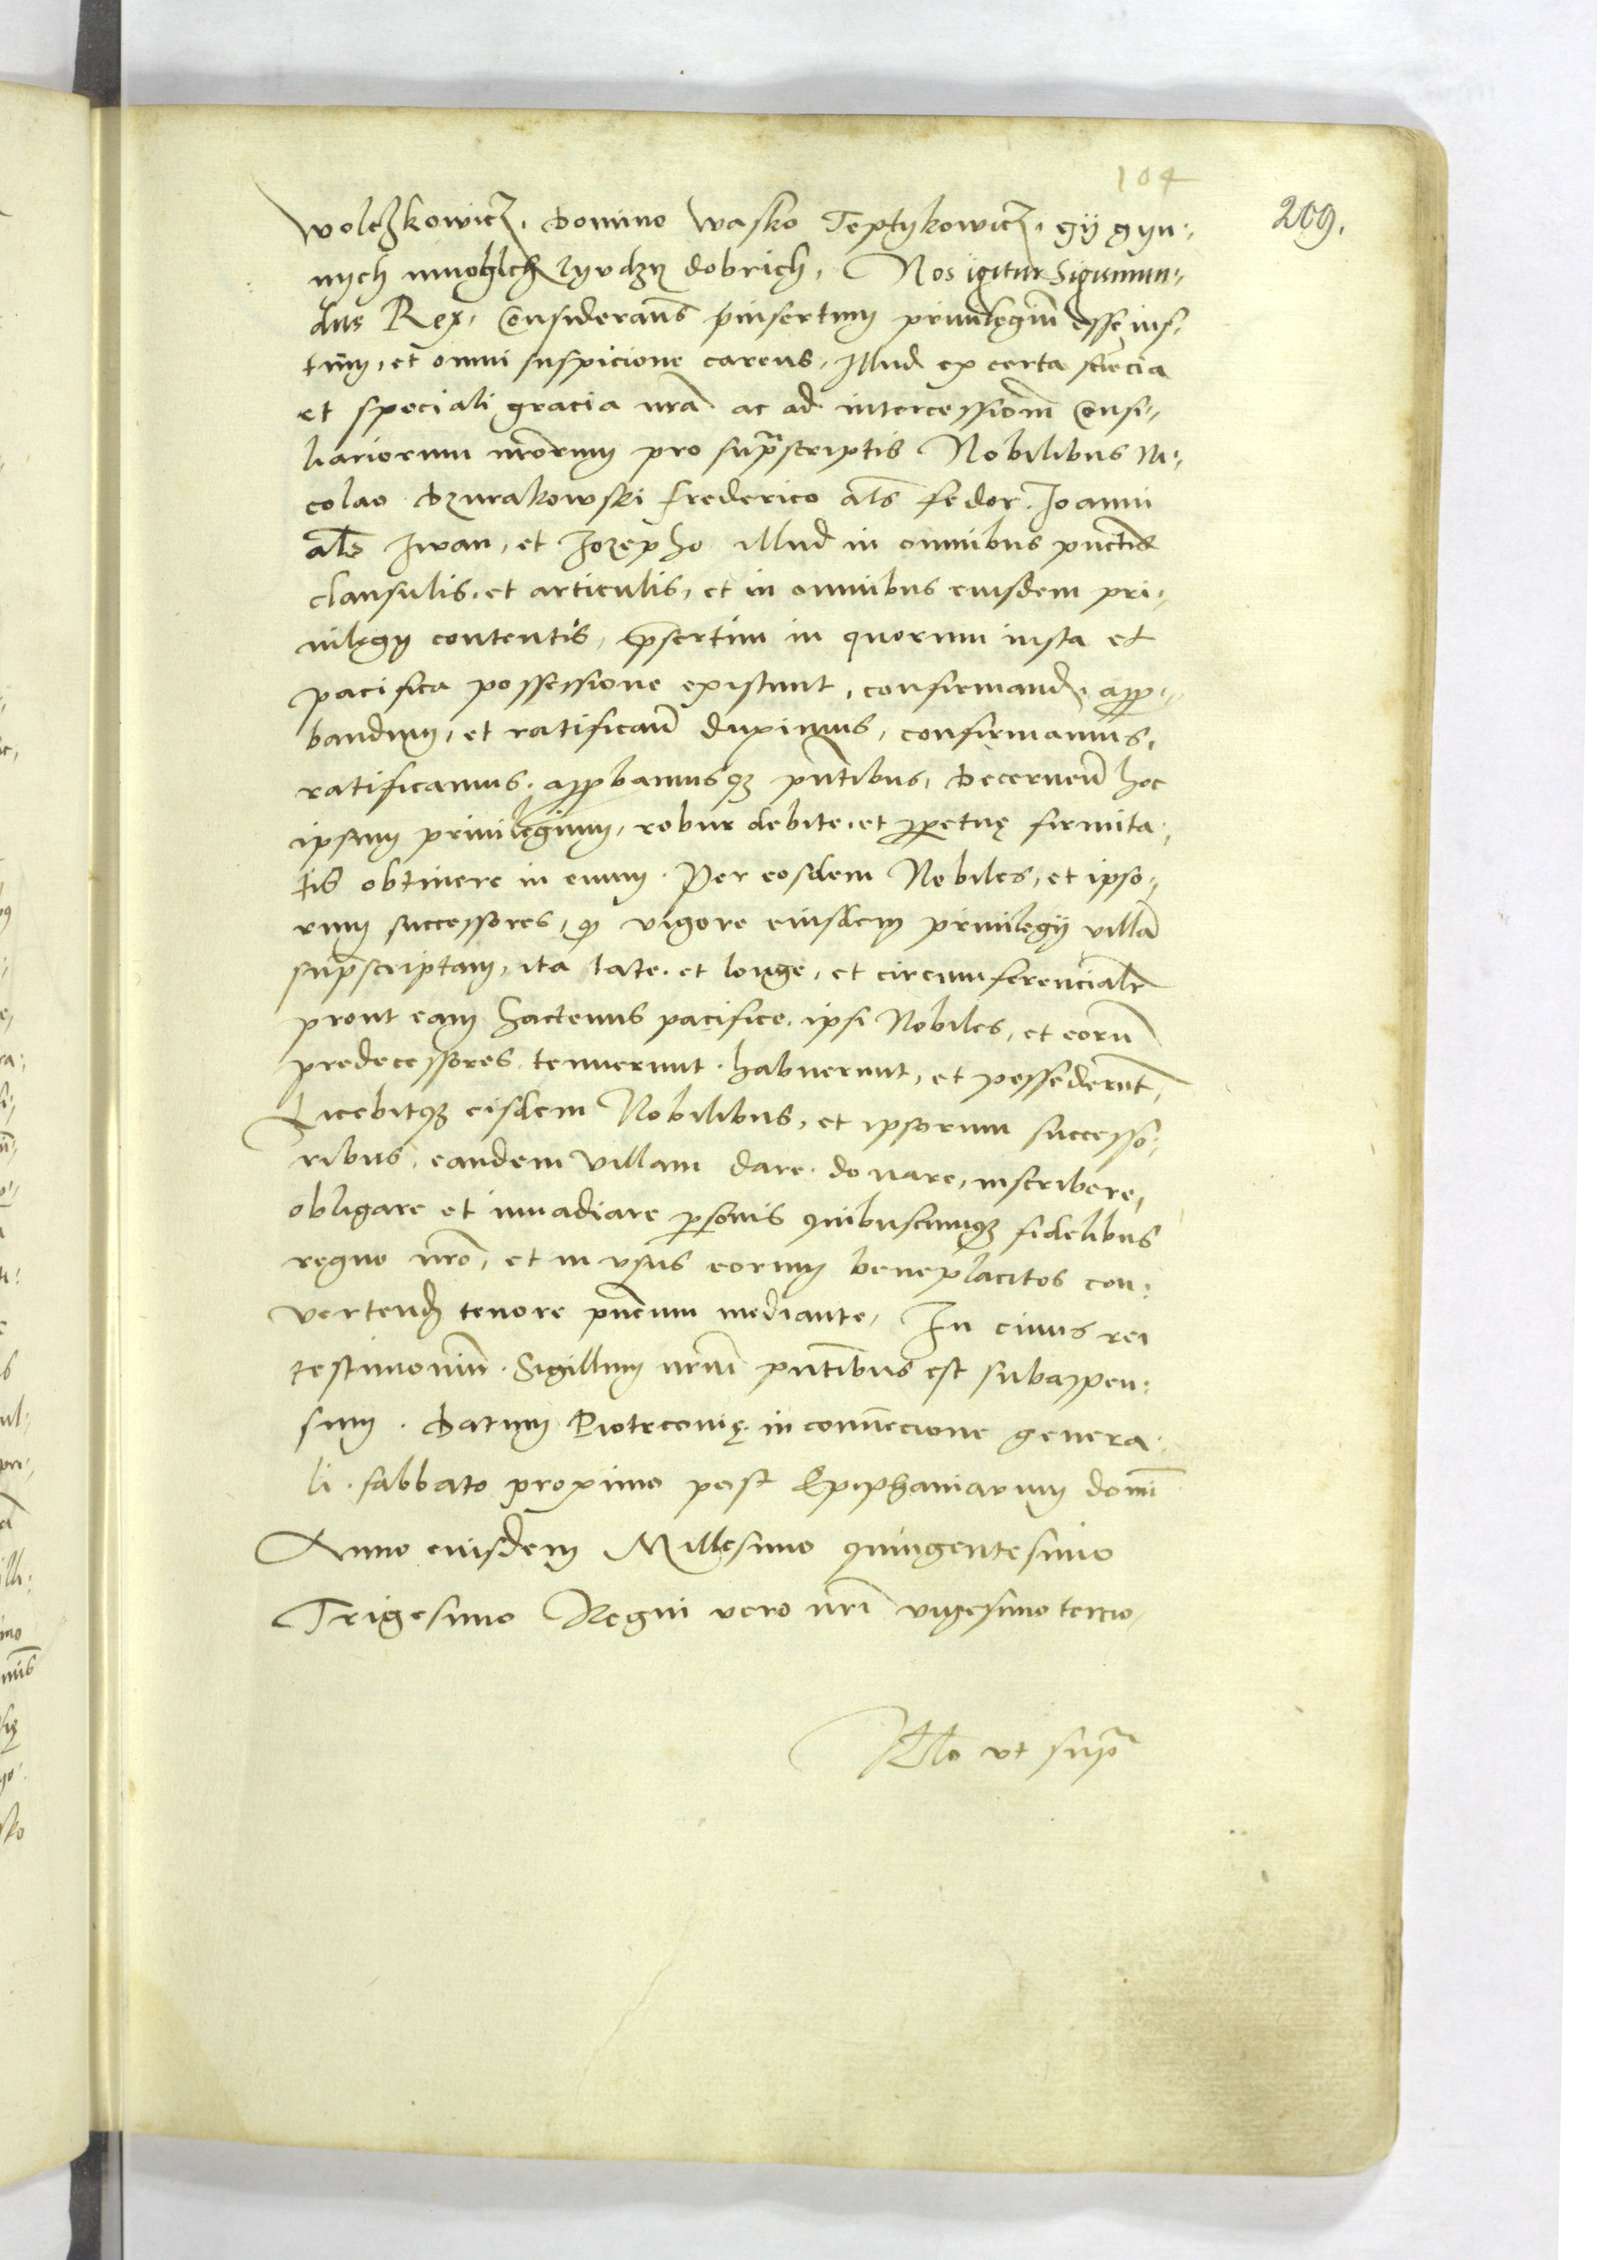 104
209.
Wolczkowicz, Domino Wasko Teptykowicz, gÿ gyn:
nych mnohich lyvdzy dobrich, Nos igitur Sigismun:
dus Rex, Considerans p̄insertum privilegiū esse ius:
tum, et omni suspicione carens, Illud ex certa sciēcia
et speciali gracia nr̄a ac ad intercessionē Consi:
liariorum nr̄orum pro supͣscriptis Nobilibus Ni:
colao Dzurakowski Frederico al̄s Fedor Joanni
al̄s Iwan, et Jozepho illud in omnibus punctis
clausulis, et articulis, et in omnibus eiusdem pri:
vilegy contentis, p̄sertim in quorum iusta et
pacifica possessione existunt, confirmand, app:
bandum, et ratificand duximus, confirmamus,
ratificamus, appbamusqȝ pn̄tibus, Decernen̄ hoc
ipsum privilegium, robur debite, et ppetuę firmita:
tis obtinere in euum. Per eosdem Nobiles, et ipso:
rum successores, qi vigore eiusdem privilegÿ villā
sup̄scriptam, ita late, et longe, et circumferencialr̄
prout eam hactenus pacifice, ipsi Nobiles, et eorū
predecessores tenuerunt, habuerunt, et possederūt,
Licebitqȝ eisdem Nobilibus, et ipsorum successo:
ribus, eandem villam dare, donare, inscribere,
obligare et invadiare psonis quibuscumqȝ fidelibus
regno nr̄o, et in vsus eorum beneplacitos con:
vertend tenore pn̄cium mediante, In cuius rei
testimoniū Sigillum nr̄m pn̄tibus est subappen:
sum. Datum Piotrcovię in convēcione genera
li sabbato proximo post Epiphaniarum domī
Anno eiusdem Millesimo quingentesimo
Trigesimo Regni vero nr̄i vigesimo tercio
Rl̄o vt supͣ